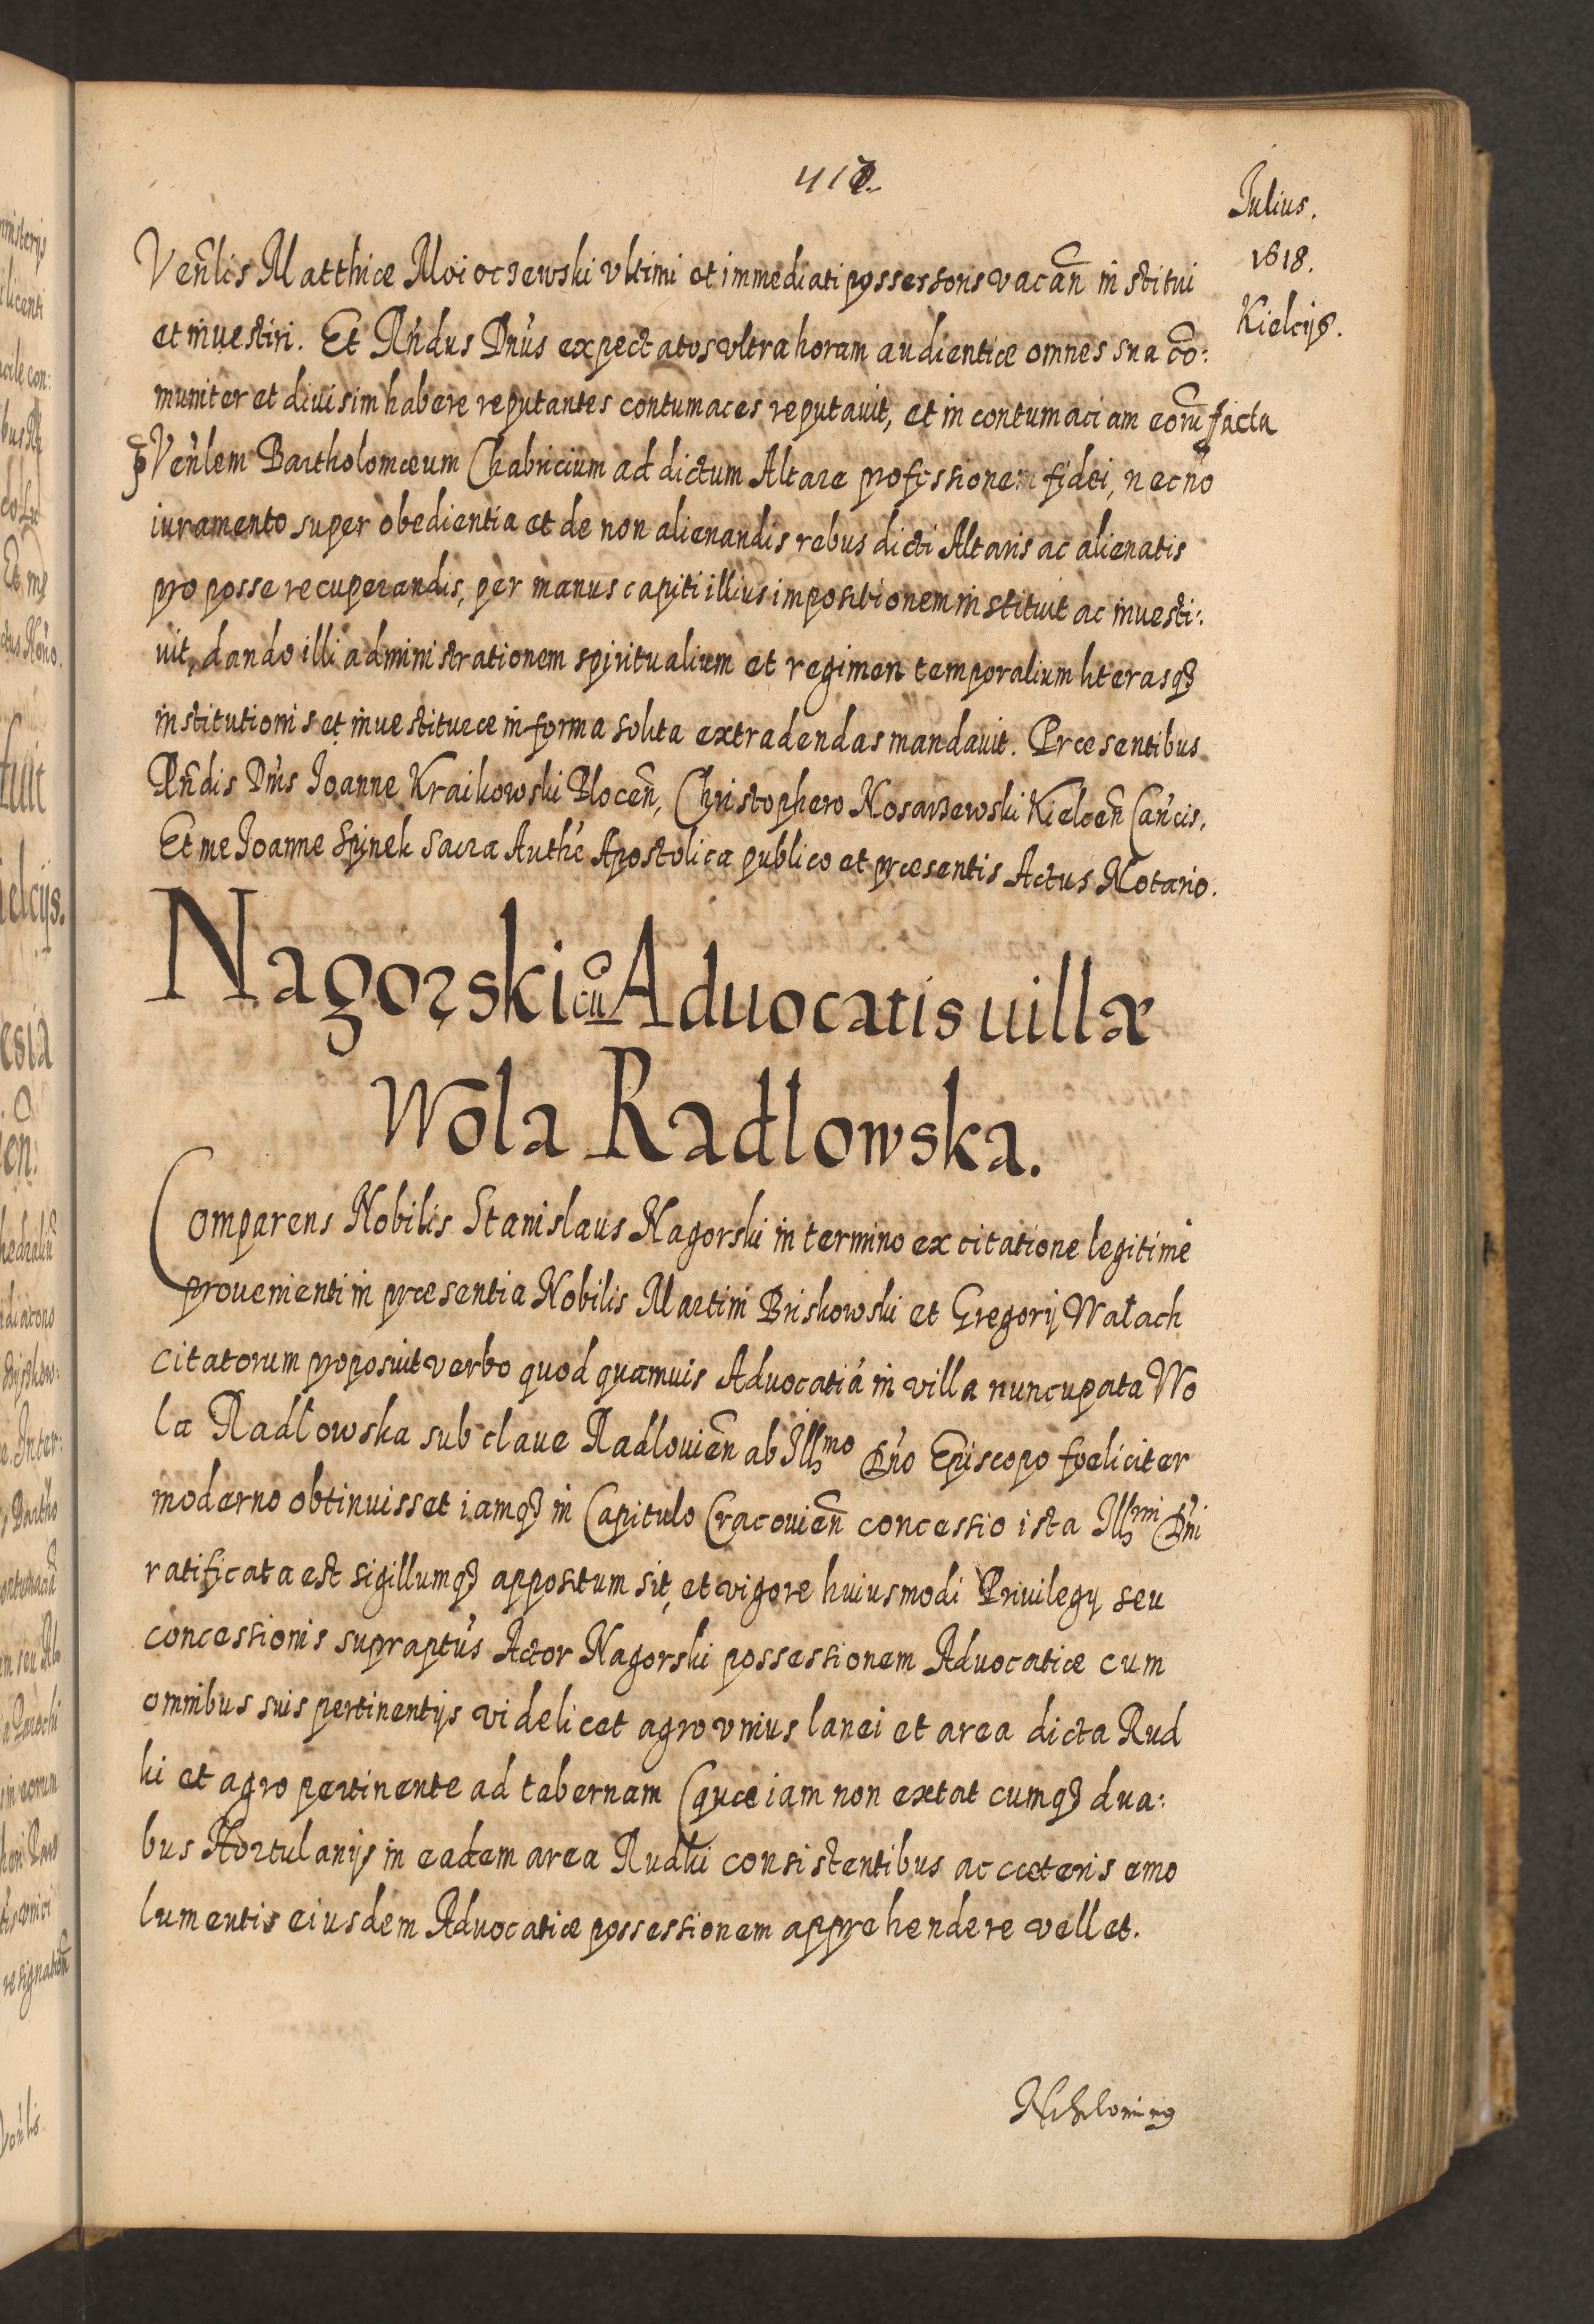 417.
Julius.
1618.
Kielcijs.
Veñlis Matthiæ Moioczewski vltimi et immediati possessoris vacañ institui
et inuestiri. Et Rñdus Dñus expectatos vltra horam audientiæ omnes sua co:
muniter et diuisim habere reputantes contumaces reputauit, et in contumaciam eorũ facta
p Veñlem Bartholomæum Chabricium ad dictum Altare professionem fidei, necnõ
iuramento super obedientia et de non alienandis rebus dicti Altaris ac alienatis
pro posse recuperandis, per manus capiti illius impositionem instituit ac inuesti:
uit, dando illi administrationem spiritualium et regimen temporalium literasq3
institutionis et inuestituræ in forma solita extradendas mandauit. Præsentibus
Rñdis Dñis Joanne Kraikowski Ploceñ, Christophero Nosarzewski Kielceñ Cañcis.
Et me Joanne Spinek Sacra Authẽ Apostolica publico et præsentis Actus Notario.
Nagorski cũ Aduocatis uillæ
Wola Radlowska.
Comparens Nobilis Stanislaus Nagorski in termino ex citatione legitimè
prouenienti in præsentia Nobilis Martini Briskowski et Gregorij Wałach
citatorum proposuit verbo quod quamuis Aduocatiã in villa nuncupata Wo
la Radłowska sub claue Radłouieñ ab Illmo Dño Episcopo fæliciter
moderno obtinuisset iamq3 in Capitulo Cracouieñ concessio ista Illmi Dñi
ratificata est sigillumq3 appositum sit, et vigore huiusmodi Priuilegij seu
concessionis supraptus Actor Nagorski possessionem Aduocatiæ cum
omnibus suis pertinentijs videlicet agro vnius lanei et area dicta Rud
ki et agro pertinente ad tabernam (quæ iam non extat cumq3 dua:
bus Hortulanijs in eadem area Rudki consistentibus ac cæteris emo
lumentis eiusdem Aduocatiæ possessionem apprehendere vellet.